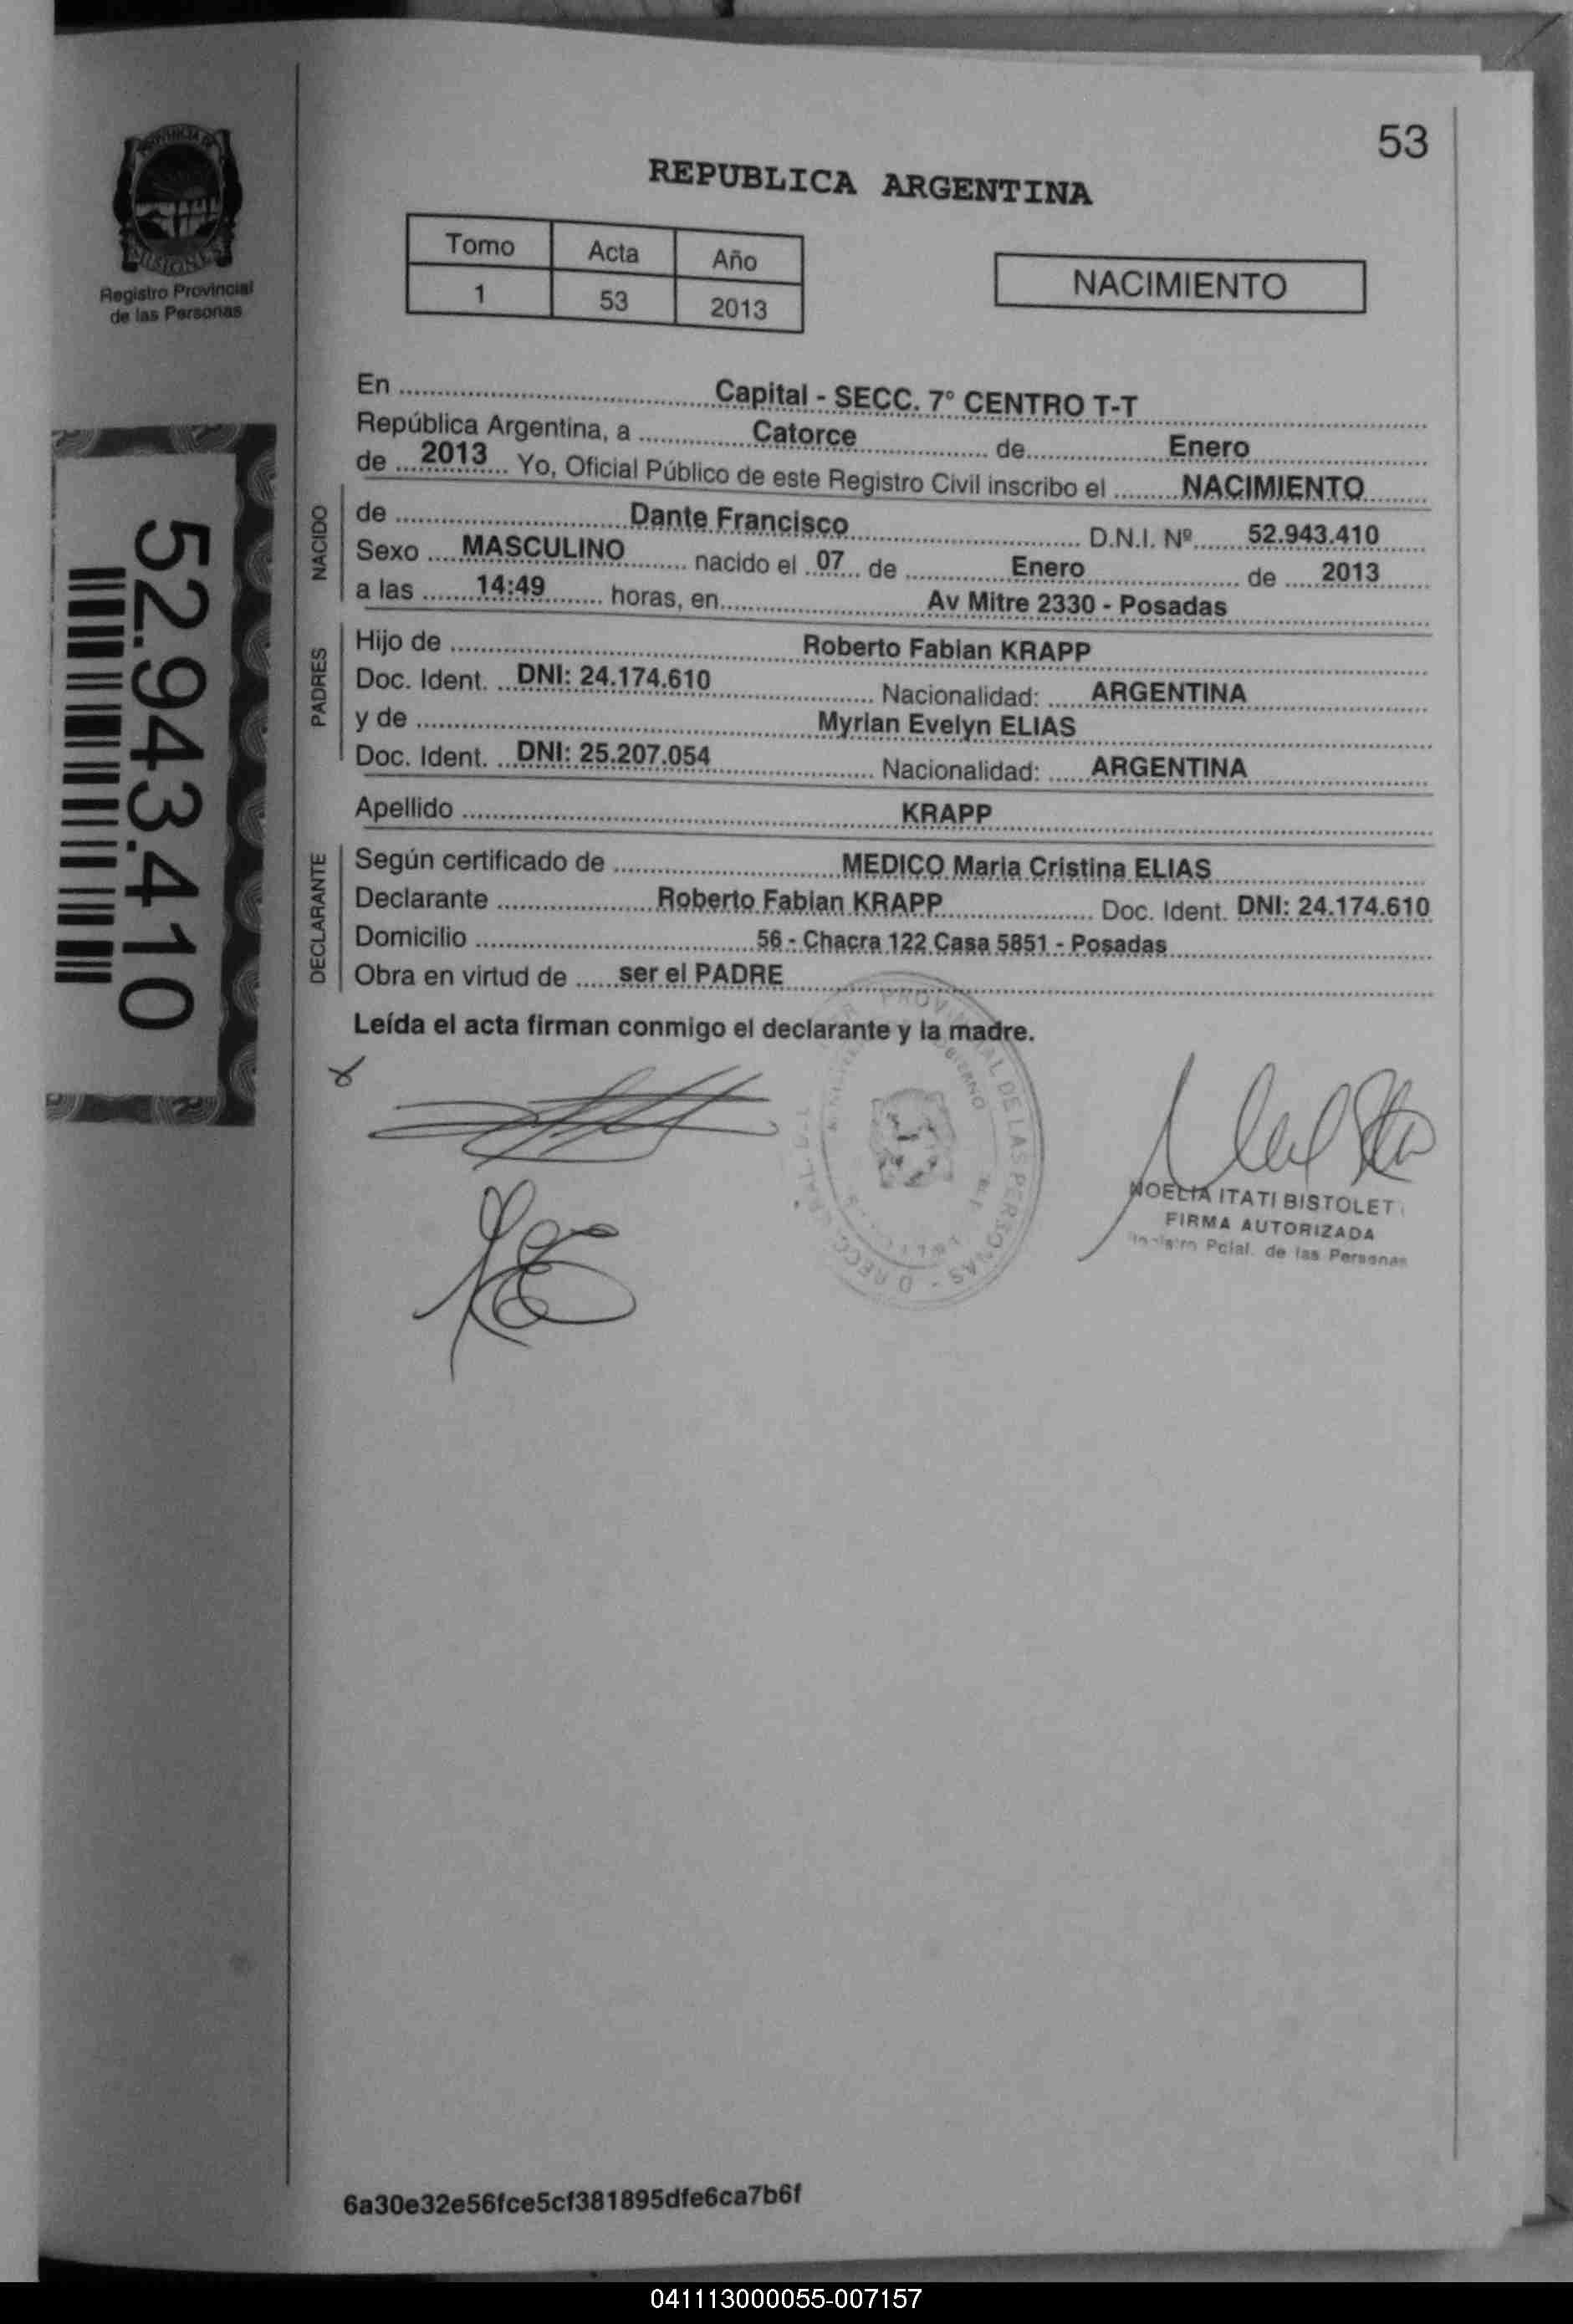 53
PROVINCIA DE
MISIONES
Registro Provincial
de las Personas
REPUBLICA ARGENTINA
Tomo Acta Año
1 53 2013
NACIMIENTO
52.943.410
En Capital - SECC. 7° CENTRO T-T
República Argentina, a Catorce de Enero
de 2013 Yo, Oficial Público de este Registro Civil inscribo el NACIMIENTO
NACIDO
de Dante Francisco D.N.I. Nº 52.943.410
Sexo MASCULINO nacido el 07 de Enero de 2013
a las 14:49 horas, en Av Mitre 2330 - Posadas
PADRES
Hijo de Roberto Fabian KRAPP
Doc. Ident. DNI: 24.174.610 Nacionalidad: ARGENTINA
y de Myrian Evelyn ELIAS
Doc. Ident. DNI: 25.207.054 Nacionalidad: ARGENTINA
Apellido KRAPP
DECLARANTE
Según certificado de MEDICO Maria Cristina ELIAS
Declarante Roberto Fabian KRAPP Doc. Ident. DNI: 24.174.610
Domicilio 56 - Chacra 122 Casa 5851 - Posadas
Obra en virtud de ser el PADRE
Leída el acta firman conmigo el declarante y la madre.
DE LAS PERSONAS
NOELIA ITATI BISTOLET
FIRMA AUTORIZADA
Pcial. de las Personas
6a30e32e56fce5cf381895dfe6ca7b6f
041113000055-007157